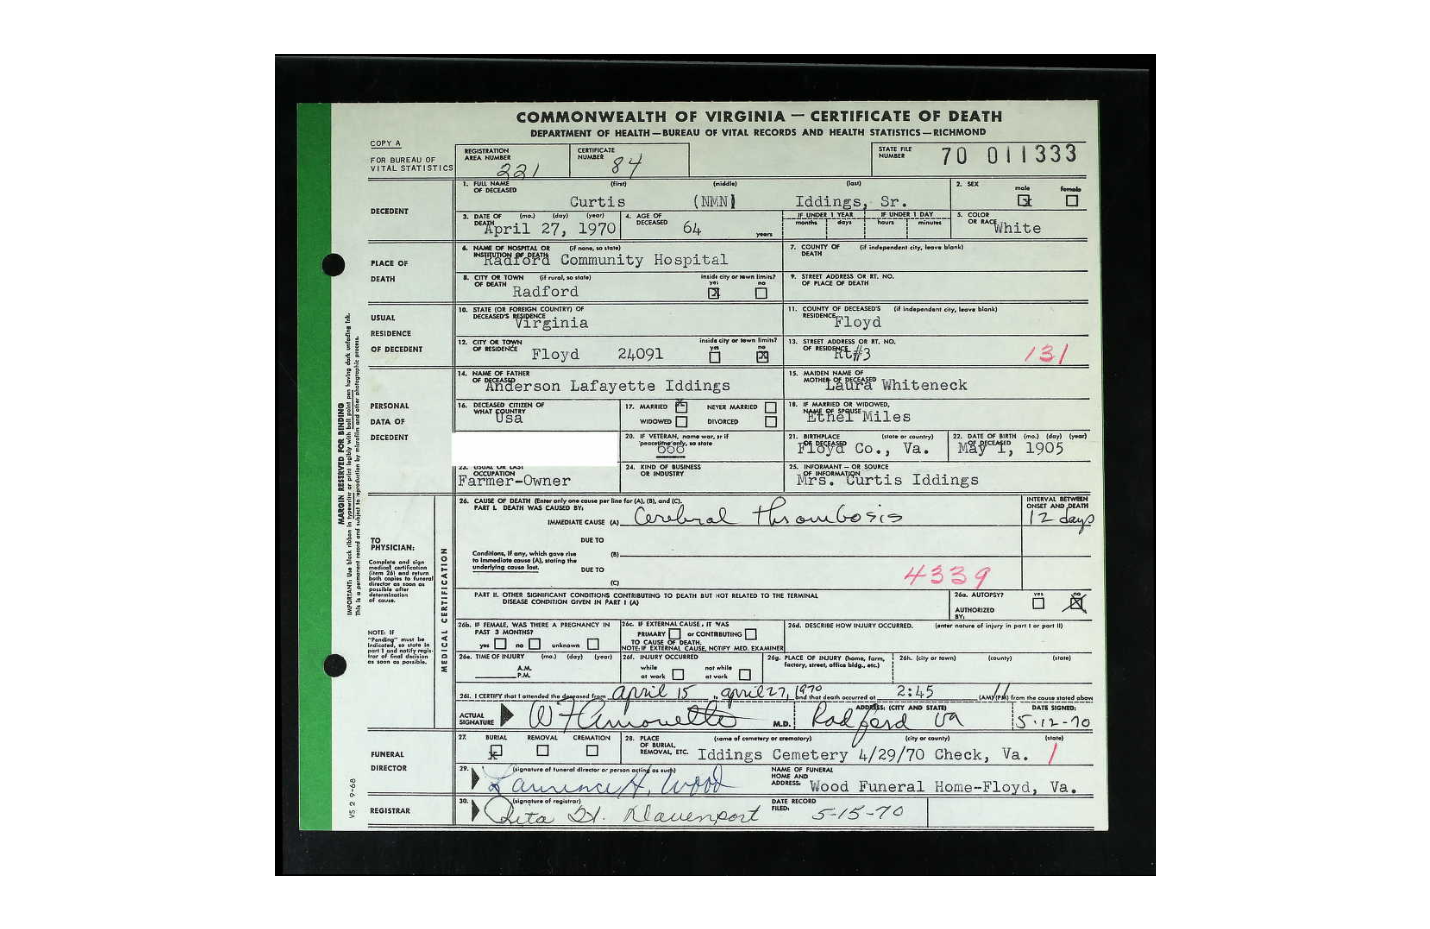 COMMONWEALTH OF VIRGINIA — CERTIFICATE OF DEATH
DEPARTMENT OF HEALTH—BUREAU OF VITAL RECORDS AND HEALTH STATISTICS—RICHMOND
COPY A
FOR BUREAU OF VITAL STATISTICS
REGISTRATION AREA NUMBER 221
CERTIFICATE NUMBER 84
STATE FILE NUMBER 70 011333
DECEDENT
1. FULL NAME OF DECEASED (first) (middle) (last)
Curtis (NMN) Iddings, Sr.
2. SEX male female
3. DATE OF DEATH (mo.) (day) (year) April 27, 1970
4. AGE OF DECEASED 64 years
IF UNDER 1 YEAR months days
IF UNDER 1 DAY hours minutes
5. COLOR OR RACE White
PLACE OF DEATH
6. NAME OF HOSPITAL OR INSTITUTION OF DEATH (if none, so state)
Radford Community Hospital
7. COUNTY OF DEATH (if independent city, leave blank)
8. CITY OR TOWN OF DEATH (if rural, so state) Radford
inside city or town limits? yes no
9. STREET ADDRESS OR RT. NO. OF PLACE OF DEATH
USUAL RESIDENCE OF DECEDENT
10. STATE (OR FOREIGN COUNTRY) OF DECEASED'S RESIDENCE Virginia
11. COUNTY OF DECEASED'S RESIDENCE (if independent city, leave blank) Floyd
12. CITY OR TOWN OF RESIDENCE Floyd 24091
inside city or town limits? yes no
13. STREET ADDRESS OR RT. NO. OF RESIDENCE Rt#3 131
PERSONAL DATA OF DECEDENT
14. NAME OF FATHER OF DECEASED Anderson Lafayette Iddings
15. MAIDEN NAME OF MOTHER OF DECEASED Laura Whiteneck
16. DECEASED CITIZEN OF WHAT COUNTRY Usa
17. MARRIED NEVER MARRIED WIDOWED DIVORCED
18. IF MARRIED OR WIDOWED, NAME OF SPOUSE Ethel Miles
20. IF VETERAN, name war, or if peacetime only, so state
21. BIRTHPLACE OF DECEASED (state or country) Floyd Co., Va.
22. DATE OF BIRTH OF DECEASED (mo.) (day) (year) May 1, 1905
23. USUAL OR LAST OCCUPATION Farmer-Owner
24. KIND OF BUSINESS OR INDUSTRY
25. INFORMANT — OR SOURCE OF INFORMATION Mrs. Curtis Iddings
MARGIN RESERVED FOR BINDING
IMPORTANT: Use black ribbon in typewriter or print legibly with ball point pen having dark unfading ink.
This is a permanent record and subject to reproduction by microfilm and other photographic process.
TO PHYSICIAN:
Complete and sign medical certification (item 26) and return both copies to funeral director as soon as possible after determination of cause.
NOTE: IF "Pending" must be indicated, so state in part I and notify registrar of final decision as soon as possible.
MEDICAL CERTIFICATION
26. CAUSE OF DEATH (Enter only one cause per line for (A), (B), and (C).
PART I. DEATH WAS CAUSED BY:
IMMEDIATE CAUSE (A) Cerebral thrombosis
INTERVAL BETWEEN ONSET AND DEATH 12 days
DUE TO
Conditions, if any, which gave rise to immediate cause (A), stating the underlying cause last. (B)
DUE TO
(C)
4339
PART II. OTHER SIGNIFICANT CONDITIONS CONTRIBUTING TO DEATH BUT NOT RELATED TO THE TERMINAL DISEASE CONDITION GIVEN IN PART I (A)
26a. AUTOPSY? yes no
AUTHORIZED BY:
26b. IF FEMALE, WAS THERE A PREGNANCY IN PAST 3 MONTHS? yes no unknown
26c. IF EXTERNAL CAUSE, IT WAS PRIMARY or CONTRIBUTING TO CAUSE OF DEATH.
NOTE: IF EXTERNAL CAUSE, NOTIFY MED. EXAMINER
26d. DESCRIBE HOW INJURY OCCURRED. (enter nature of injury in part I or part II)
26e. TIME OF INJURY (mo.) (day) (year) A.M. P.M.
26f. INJURY OCCURRED while at work not while at work
26g. PLACE OF INJURY (home, farm, factory, street, office bldg., etc.)
26h. (city or town) (county) (state)
26i. I CERTIFY that I attended the deceased from April 15 to April 27, 1970 and that death occurred at 2:45 (AM) (PM) from the cause stated above
ACTUAL SIGNATURE M.D.
ADDRESS: (CITY AND STATE) Radford Va
DATE SIGNED: 5-12-70
FUNERAL DIRECTOR
27. BURIAL REMOVAL CREMATION
28. PLACE OF BURIAL, REMOVAL, ETC. (name of cemetery or crematory) (city or county) (state)
Iddings Cemetery 4/29/70 Check, Va. 1
29. (signature of funeral director or person acting as such)
Laurence H. Wood
NAME OF FUNERAL HOME AND ADDRESS: Wood Funeral Home-Floyd, Va.
REGISTRAR
30. (signature of registrar)
Rita H. Davenport
DATE RECORD FILED: 5-15-70
VS 2 9-68